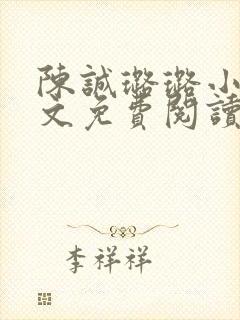 陳誠璐璐小
文免費閱讀
李祥祥